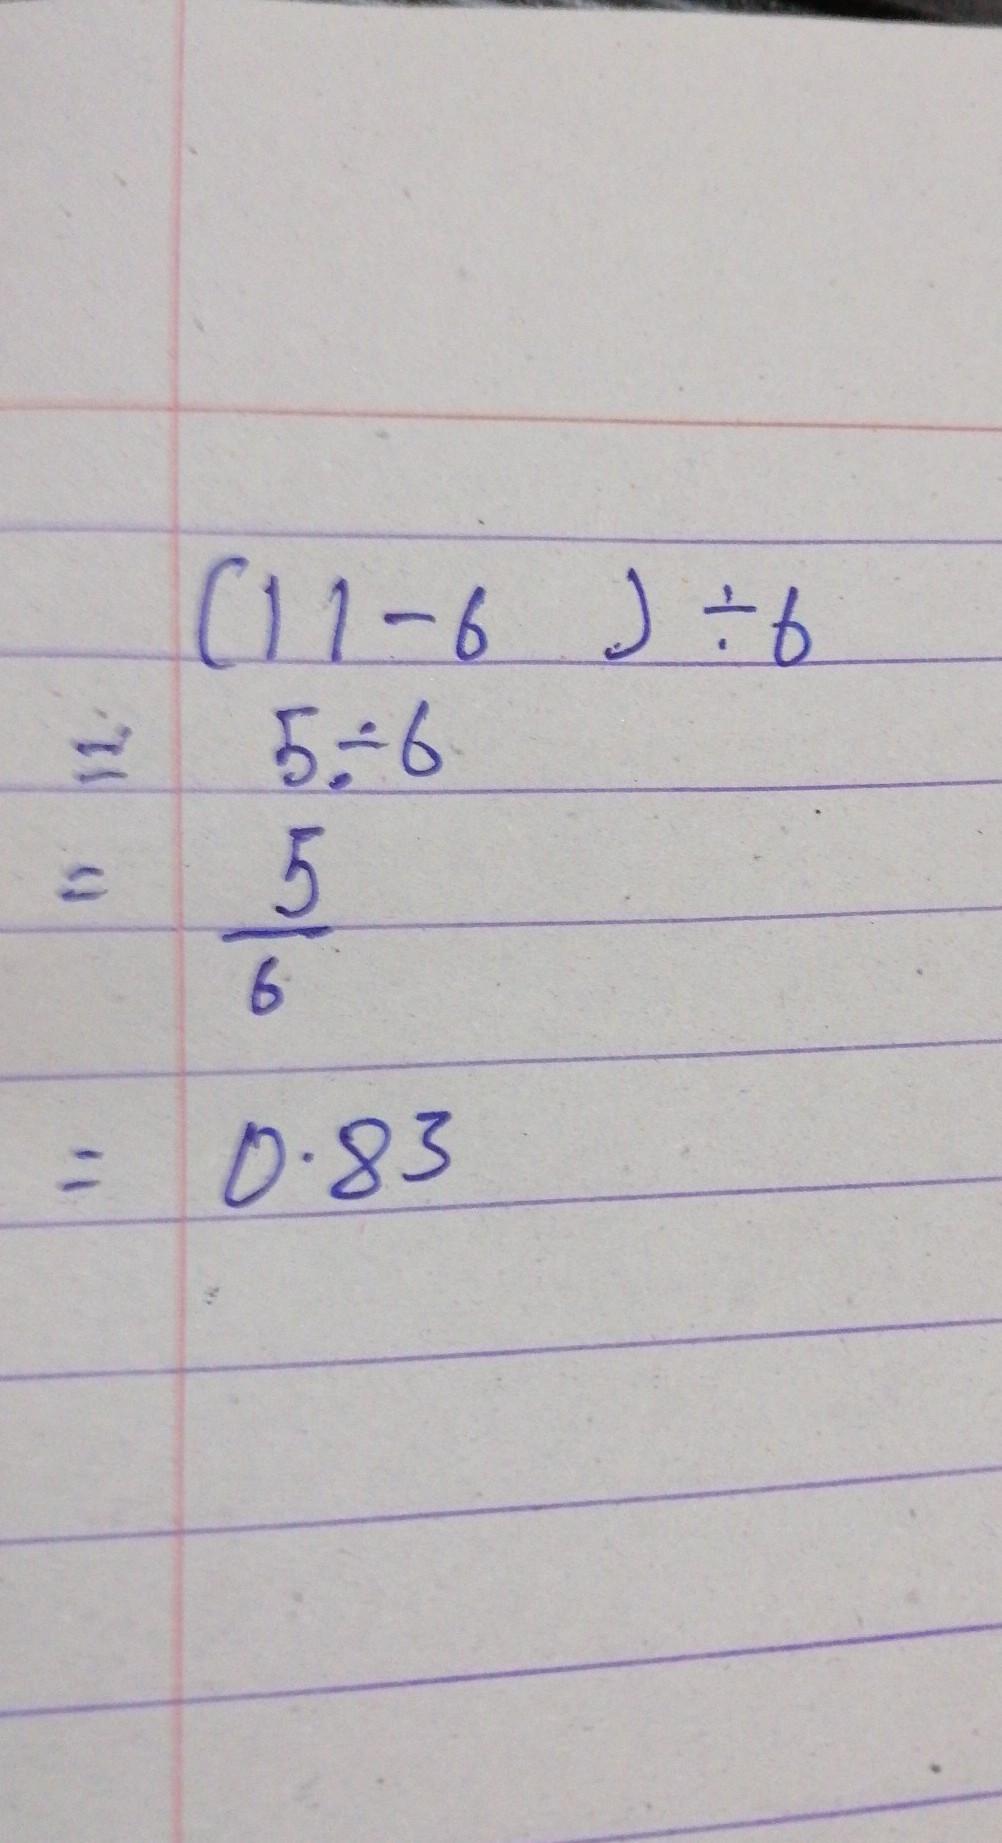 (11-6 ) ÷6
= 5÷6
= 5
6
= 0.83